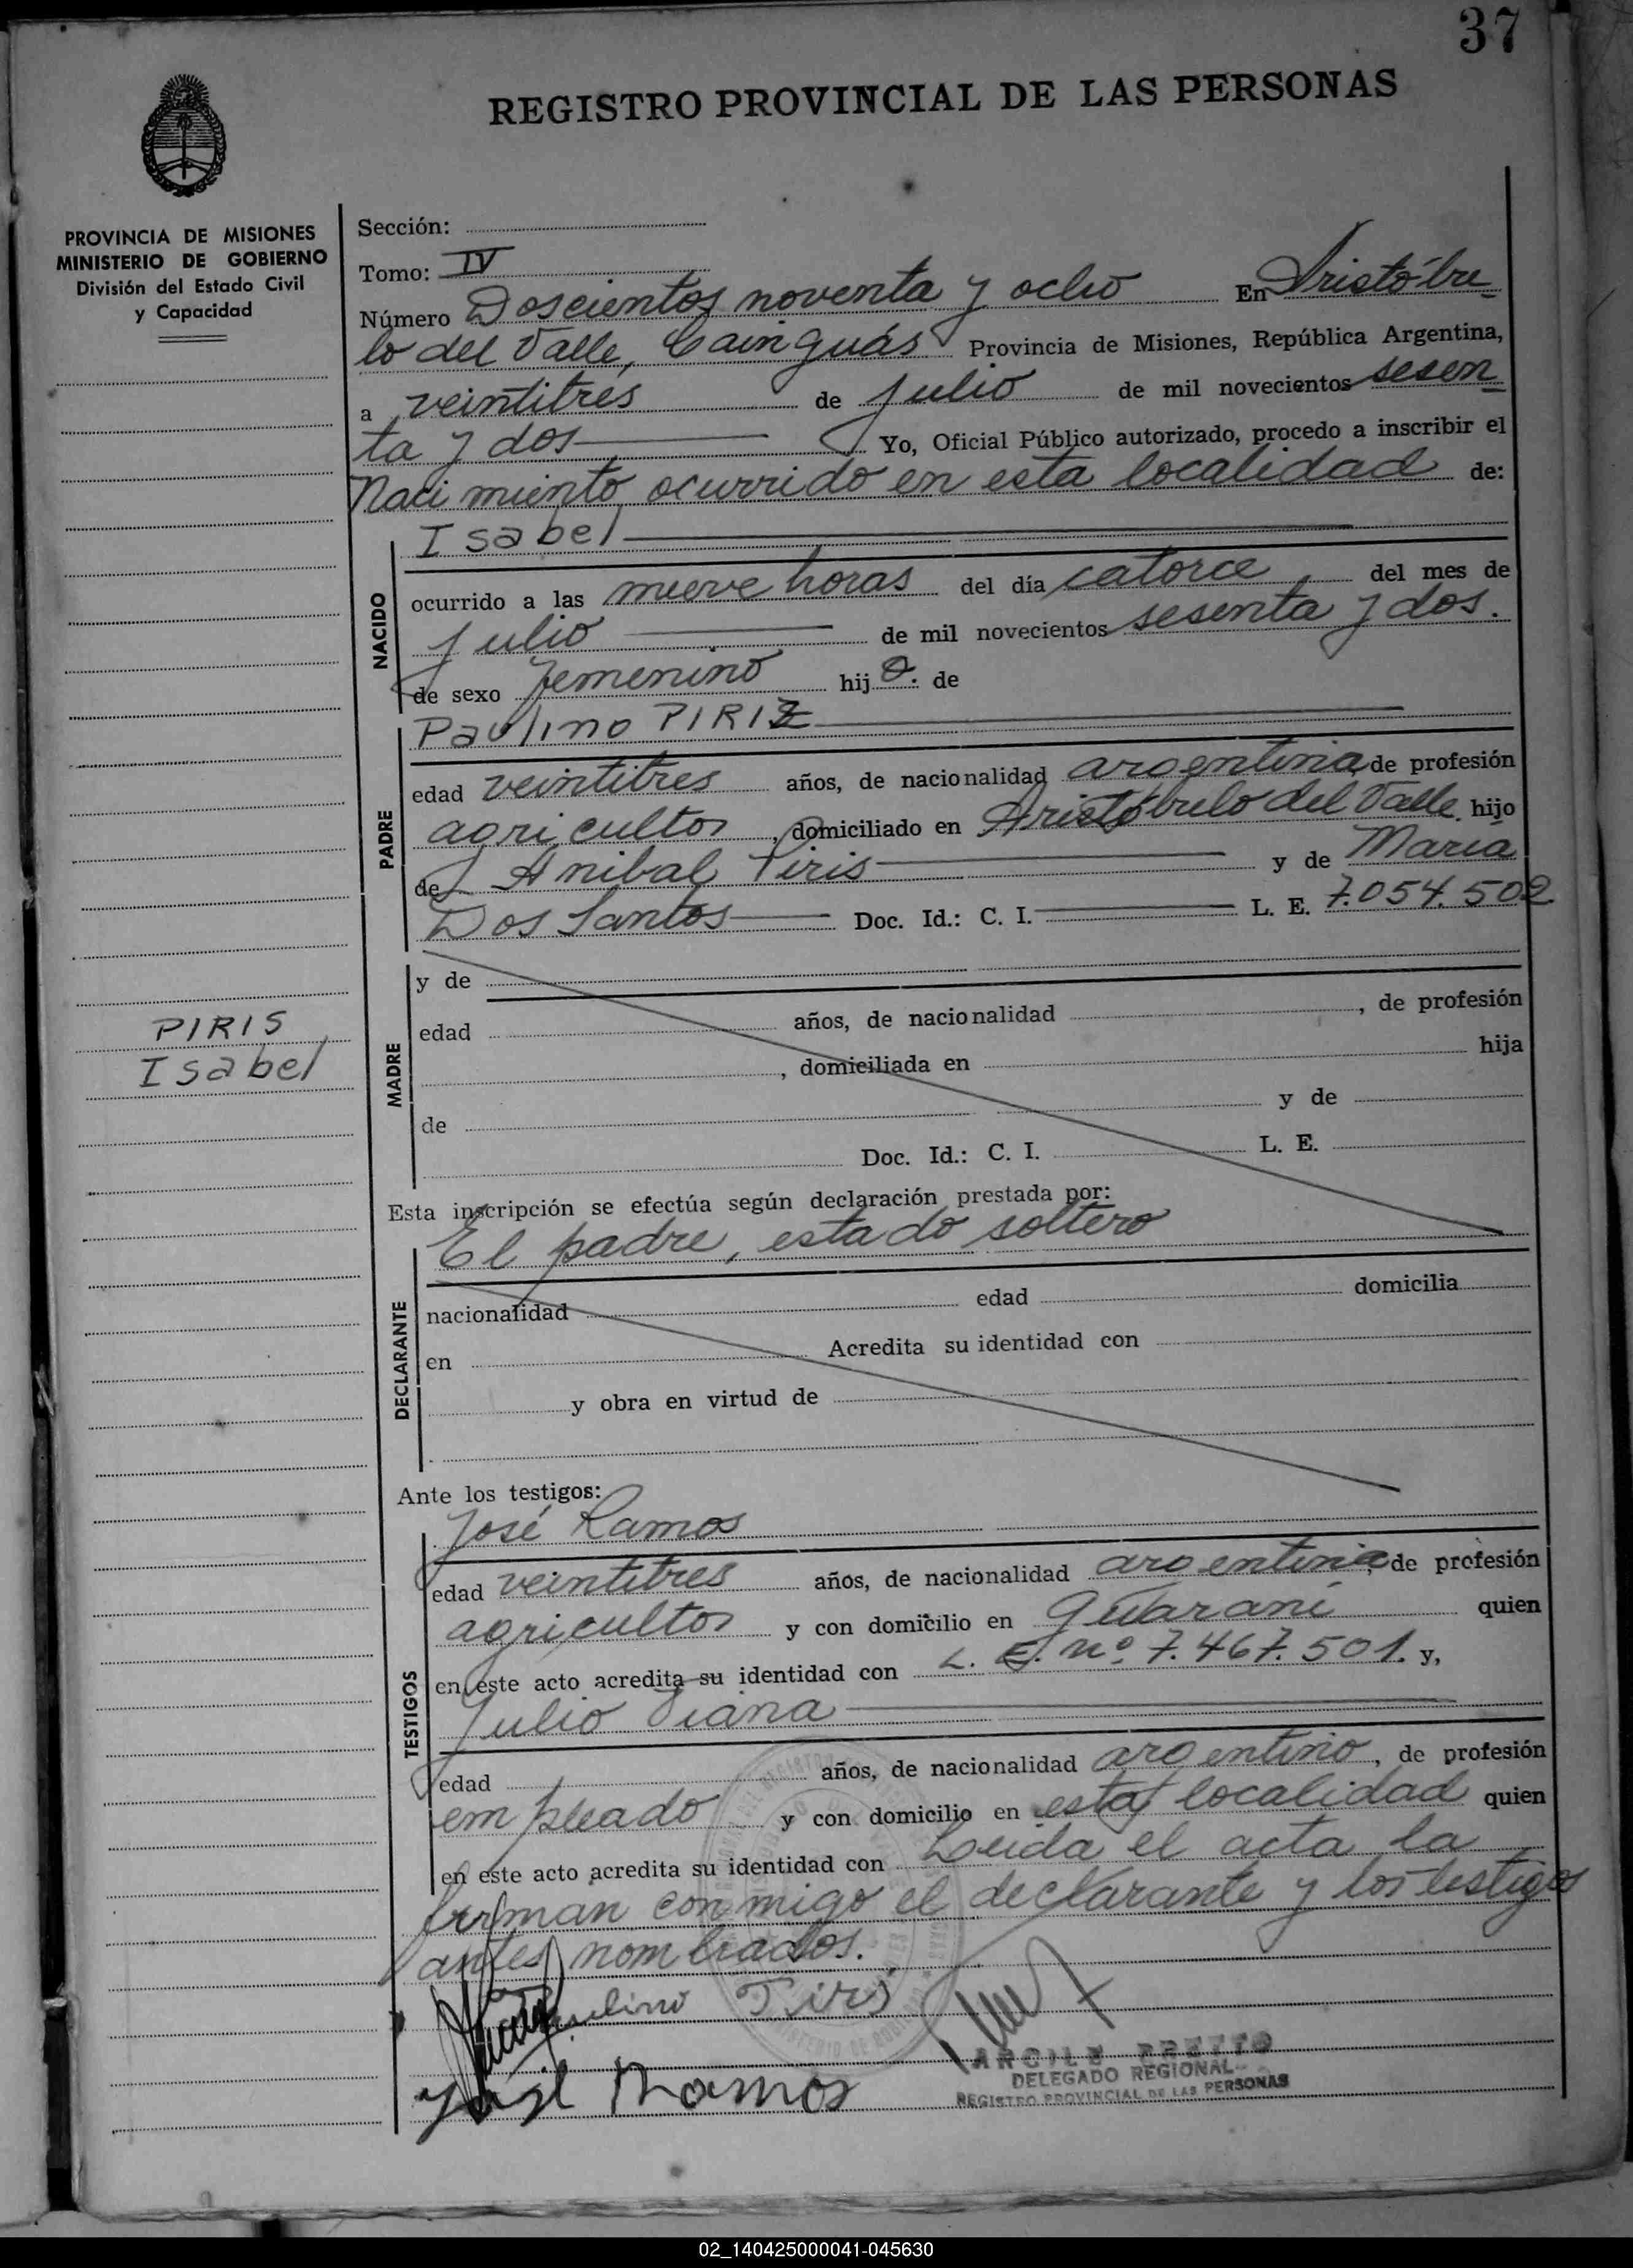 37
REGISTRO PROVINCIAL DE LAS PERSONAS
PROVINCIA DE MISIONES
MINISTERIO DE GOBIERNO
División del Estado Civil
y Capacidad
Sección:
Tomo: IV
Número Doscientos noventa y ocho En Aristóbu-
lo del Valle, Cainguás Provincia de Misiones, República Argentina,
a veintitrés de julio de mil novecientos sesen-
ta y dos Yo, Oficial Público autorizado, procedo a inscribir el
Nacimiento ocurrido en esta localidad de:
Isabel
NACIDO
ocurrido a las nueve horas del día catorce del mes de
julio de mil novecientos sesenta y dos.
de sexo femenino hija. de
Paulino PIRIZ
PADRE
edad veintitres años, de nacionalidad argentina, de profesión
agricultor, domiciliado en Aristóbulo del Valle hijo
de Anibal Piris y de María
Dos Santos Doc. Id.: C. I. L. E. 7.054.502.
MADRE
y de
edad años, de nacionalidad , de profesión
, domiciliada en hija
de y de
Doc. Id.: C. I. L. E.
PIRIS
Isabel
Esta inscripción se efectúa según declaración prestada por:
El padre, estado soltero
DECLARANTE
nacionalidad edad domicilia
en Acredita su identidad con
y obra en virtud de
Ante los testigos:
José Ramos
TESTIGOS
edad veintitres años, de nacionalidad argentina, de profesión
agricultor y con domicilio en guaraní quien
en este acto acredita su identidad con L. E. nº. 7.467.501. y,
Julio Viana
edad años, de nacionalidad argentino, de profesión
empleado y con domicilio en esta localidad quien
en este acto acredita su identidad con Leída el acta la
firman conmigo el declarante y los testigos
antes nombrados.
Paulino Piris
José Ramos
DELEGADO REGIONAL
REGISTRO PROVINCIAL DE LAS PERSONAS
02_140425000041-045630